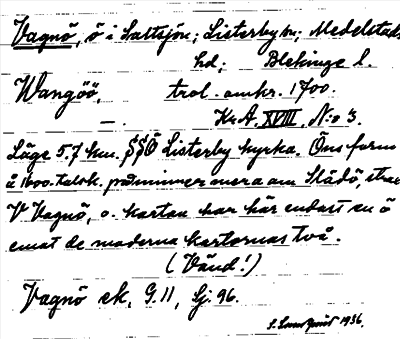 Vagnö, ö i Saltsjön; Listerby sn; Medelstads
hd; Blekinge l.
Wangöö, trol. omkr. 1700.
— . Kr.A. XVIII, N:o 3.
Läge 5.7 km. SSÖ Listerby kyrka. Öns form
å 1600-talsk. påminner mera om Slädö, strax
V Vagnö, o. kartan har här endast en ö
emot de moderna kartornas två.
(Vänd!)
Vagnö ek, G.11, Sj 96.
1936.